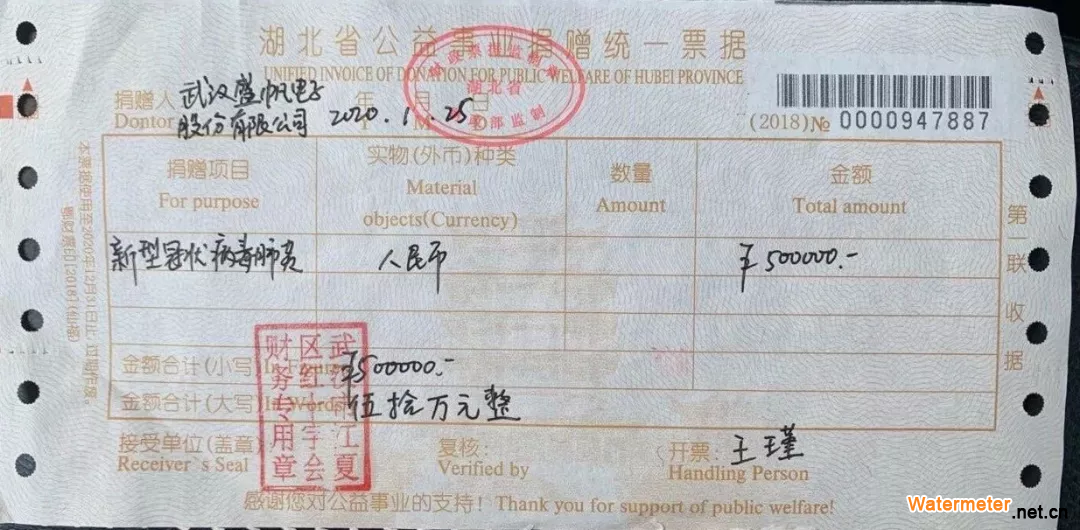 湖北省公益事业捐赠统一票据
UNIFIED INVOICE OF DONATION FOR PUBLIC WELFARE OF HUBEI PROVINCE
捐赠人 武汉盛帆电子
Dontor 股份有限公司
年 月 日
2020.1.25
湖北省
(2018) № 0000947887
捐赠项目 实物(外币)种类 数量 金额
For purpose Material objects(Currency) Amount Total amount
新型冠状病毒肺炎 人民币 ¥500000.-
金额合计(小写) ¥500000.-
金额合计(大写)In Words 伍拾万元整
接受单位(盖章) 复核: 开票: 王瑾
Receiver's Seal Verified by Handling Person
感谢您对公益事业的支持! Thank you for support of public welfare!
武汉市江夏
区红十字会
财务专用章
第一联 收据
Watermeter.net.cn